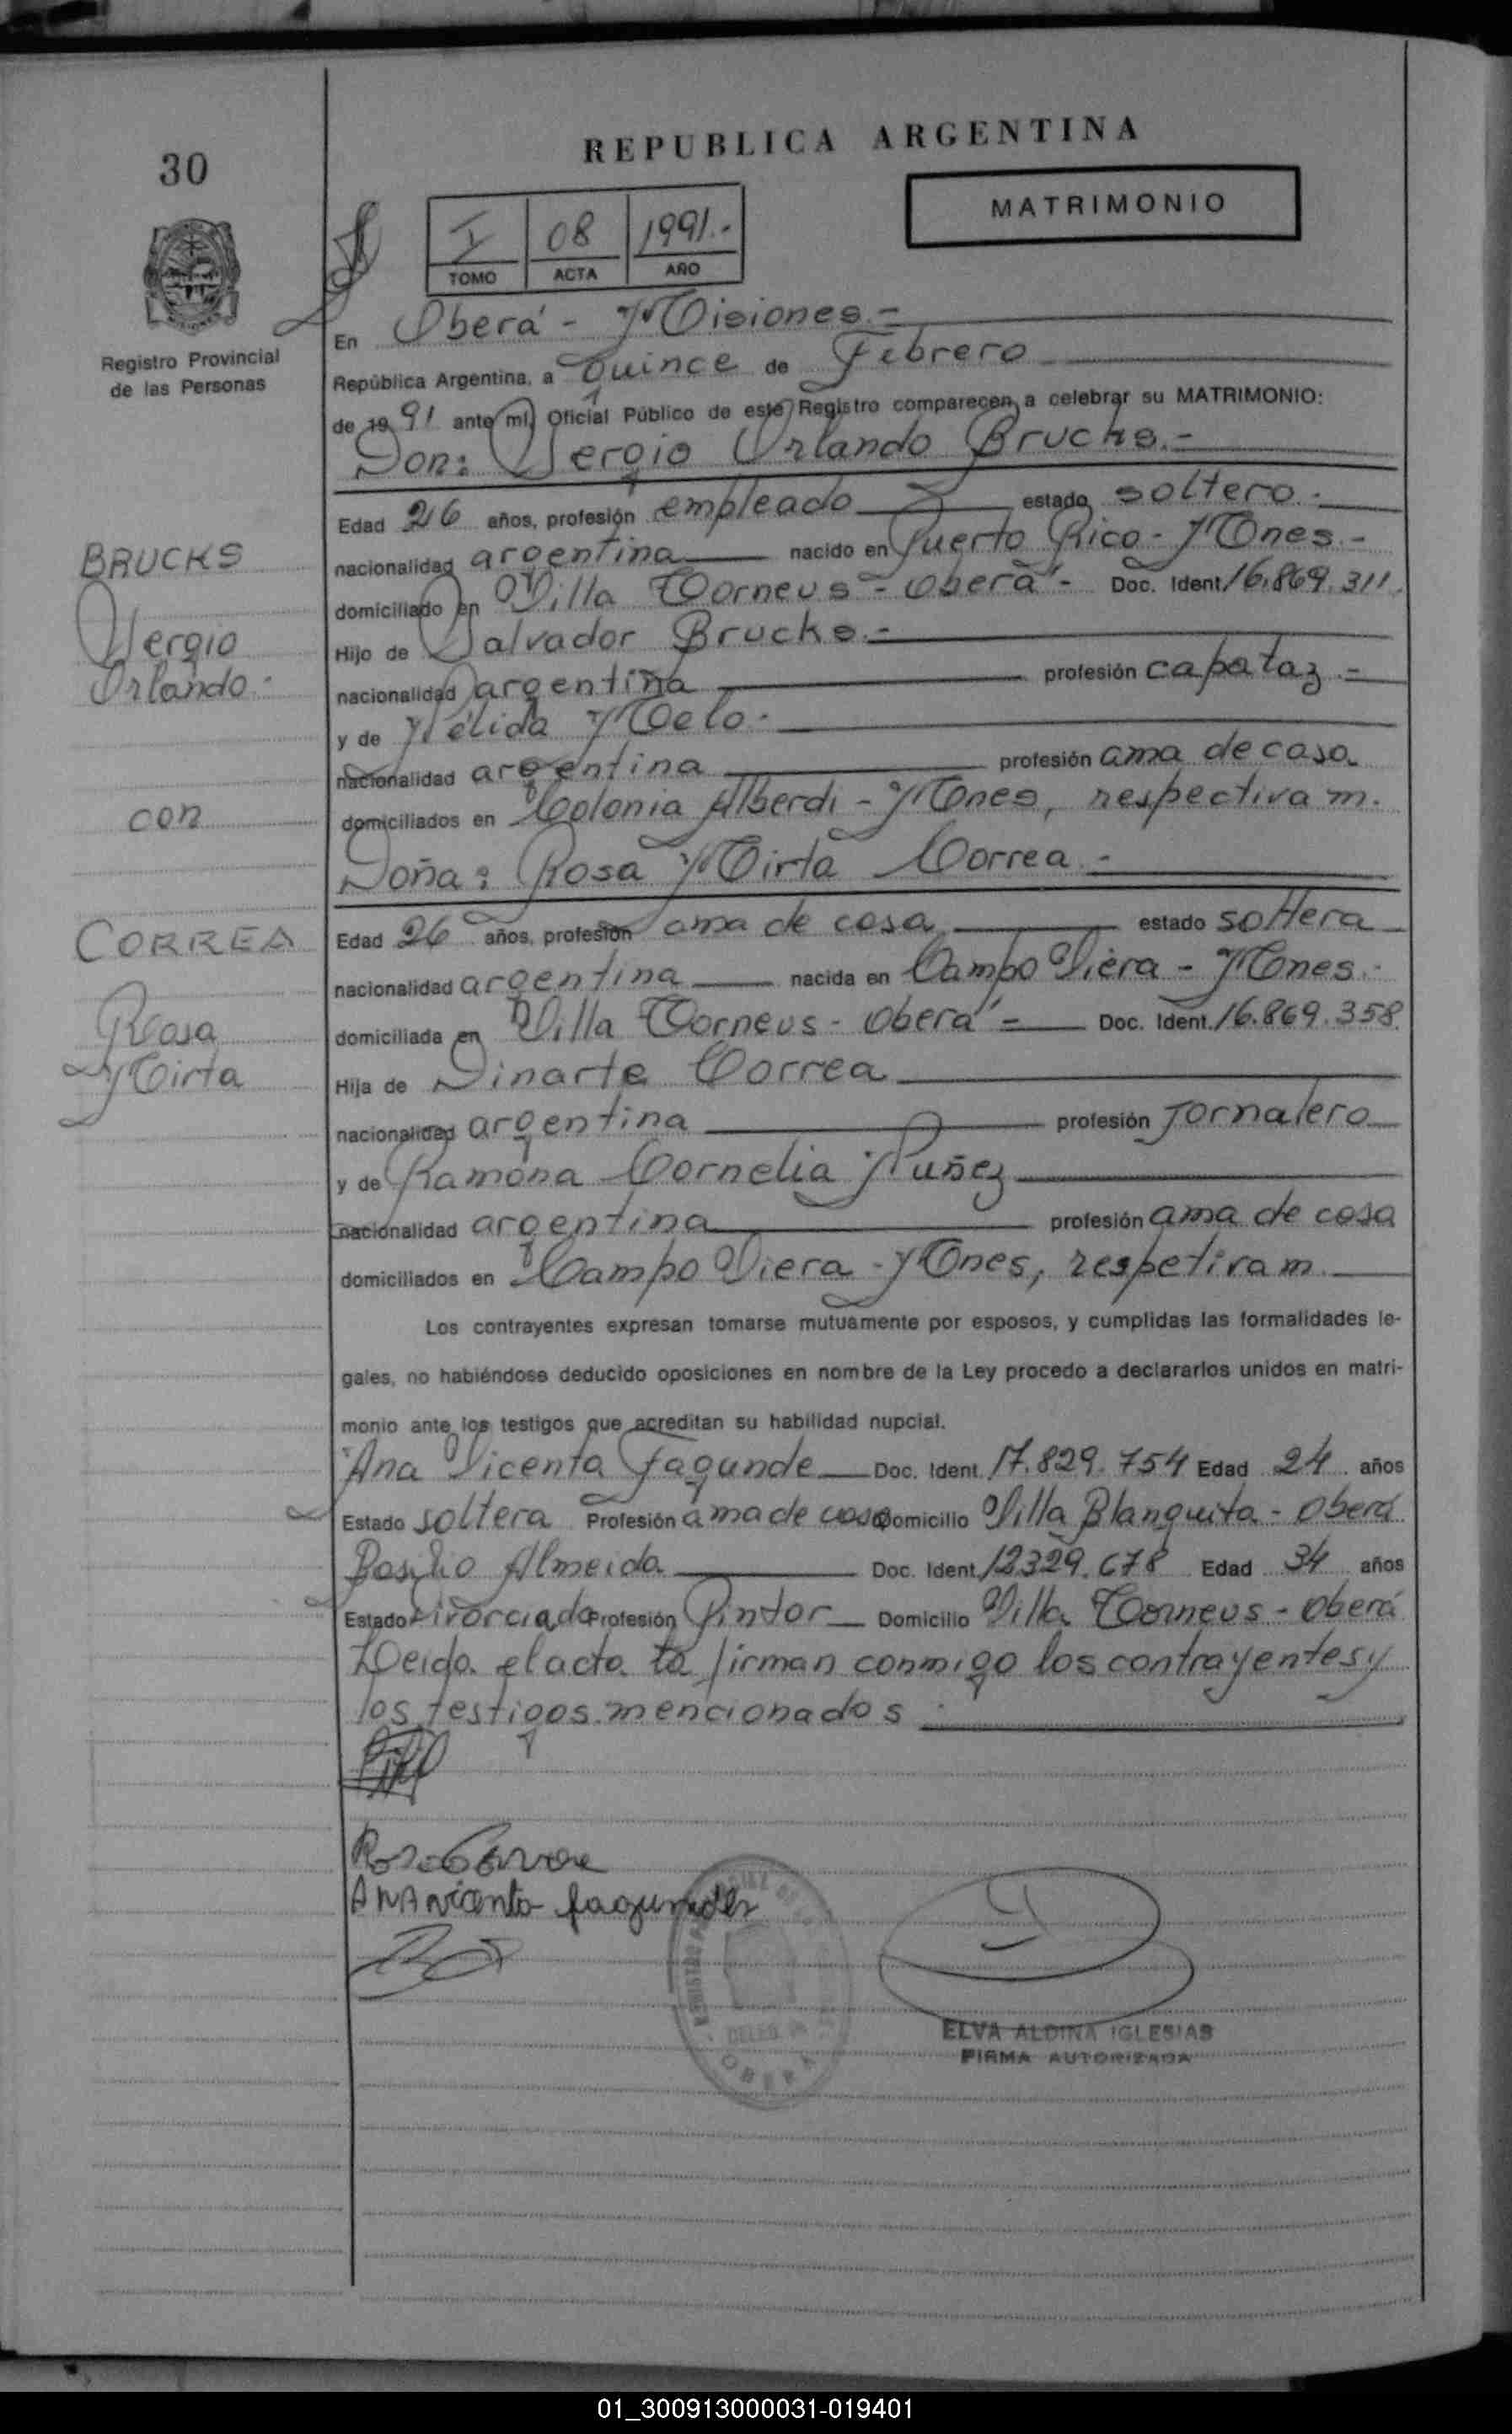 30
REPUBLICA ARGENTINA
MATRIMONIO
I 08 1991.-
TOMO ACTA AÑO
Registro Provincial
de las Personas
En Oberá - Misiones.-
República Argentina, a Quince de Febrero
de 1991 ante mi, Oficial Público de este Registro comparecen a celebrar su MATRIMONIO:
Don: Sergio Orlando Brucks.-
Edad 26 años, profesión empleado estado soltero.-
nacionalidad argentina nacido en Puerto Rico - Mnes.-
domiciliado en Villa Torneus - Oberá - Doc. Ident. 16.869.311.
Hijo de Salvador Brucks.-
nacionalidad argentina profesión capataz.-
y de Nélida Melo.-
nacionalidad argentina profesión ama de casa
domiciliados en Colonia Alberdi - Mnes, respectivam.
Doña: Rosa Mirta Correa.-
Edad 26 años, profesión ama de casa estado soltera
nacionalidad argentina nacida en Campo Viera - Mnes.-
domiciliada en Villa Torneus - Oberá - Doc. Ident. 16.869.358.
Hija de Dinarte Correa
nacionalidad argentina profesión Jornalero
y de Ramona Cornelia Nuñez
nacionalidad argentina profesión ama de casa
domiciliados en Campo Viera - Mnes, respetivam
Los contrayentes expresan tomarse mutuamente por esposos, y cumplidas las formalidades le-
gales, no habiéndose deducido oposiciones en nombre de la Ley procedo a declararlos unidos en matri-
monio ante los testigos que acreditan su habilidad nupcial.
Ana Vicenta Fagunde Doc. Ident. 17.829.754 Edad 24 años
Estado soltera Profesión ama de casa Domicilio Villa Blanquita - Oberá
Basilio Almeida Doc. Ident. 12329.678 Edad 34 años
Estado Divorciado Profesión Pintor Domicilio Villa Torneus - Oberá
Leida el acta la firman conmigo los contrayentes y
los testigos mencionados
BRUCKS
Sergio
Orlando.-
con
CORREA
Rosa
Mirta
Rosa Correa
ANA vicenta fagundes
DELEG
OBERA
ELVA ALDINA IGLESIAS
FIRMA AUTORIZADA
01_300913000031-019401